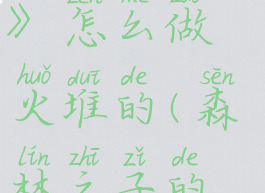 》怎么做
huǒ duī de sēn
火堆的(森
lín zhī zǐ de
林之子的